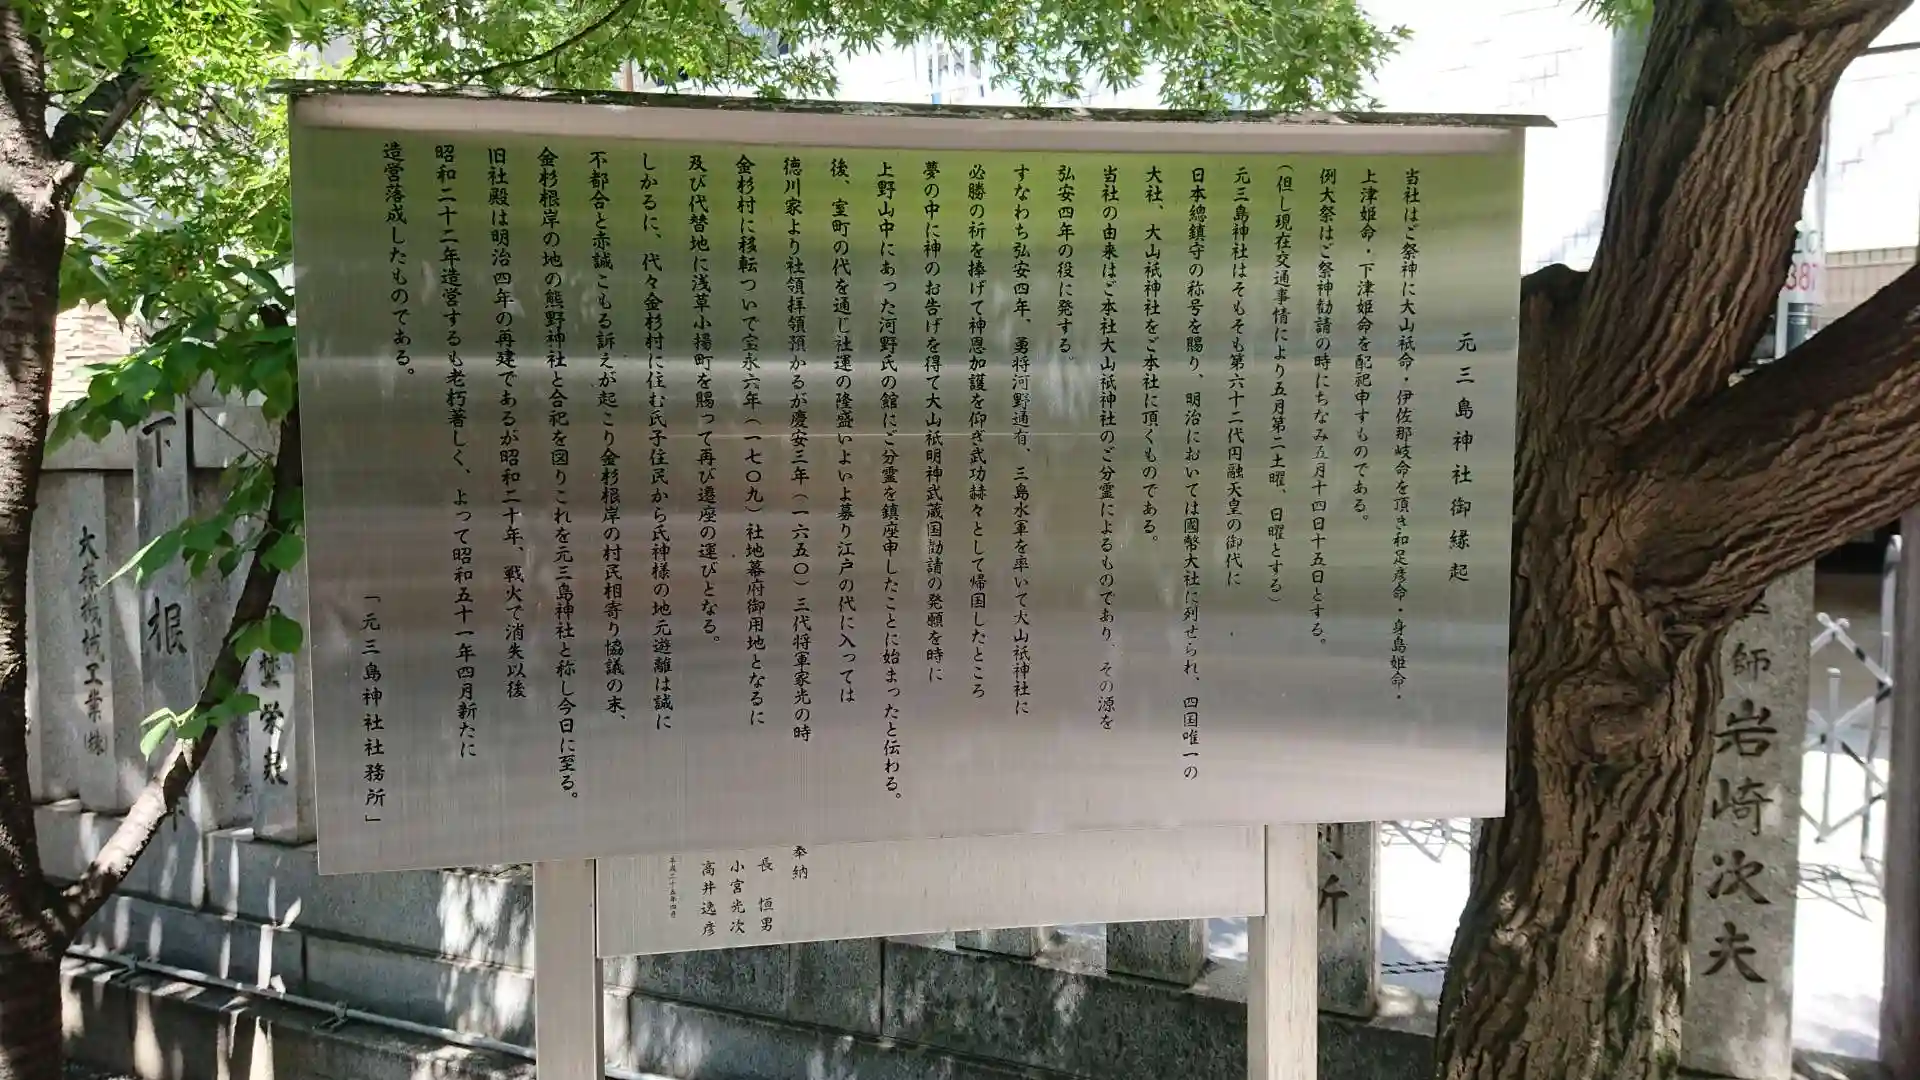 元三島神社御縁起
当社はご祭神に大山祇命・伊佐那岐命を頂き和足彦命・身島姫命・
上津姫命・下津姫命を配祀申すものである。
例大祭はご祭神勧請の時にちなみ五月十四日十五日とする。
(但し現在交通事情により五月第二土曜、日曜とする)
元三島神社はそもそも第六十二代円融天皇の御代に
日本總鎮守の称号を賜り、明治においては國幣大社に列せられ、四国唯一の
大社、大山祇神社をご本社に頂くものである。
当社の由来はご本社大山祇神社のご分霊によるものであり、その源を
弘安四年の役に発する。
すなわち弘安四年、勇将河野通有、三島水軍を率いて大山祇神社に
必勝の祈を捧げて神恩加護を仰ぎ武功赫々として帰国したところ
夢の中に神のお告げを得て大山祇明神武蔵国勧請の発願を時に
上野山中にあった河野氏の館にご分霊を鎮座申したことに始まったと伝わる。
後、室町の代を通じ社運の隆盛いよいよ募り江戸の代に入っては
徳川家より社領拝領預かるが慶安三年(一六五〇)三代将軍家光の時
金杉村に移転ついで宝永六年(一七〇九)社地幕府御用地となるに
及び代替地に浅草小揚町を賜って再び遷座の運びとなる。
しかるに、代々金杉村に住む氏子住民から氏神様の地元遊離は誠に
不都合と赤誠こもる訴えが起こり金杉根岸の村民相寄り協議の末、
金杉根岸の地の熊野神社と合祀を図りこれを元三島神社と称し今日に至る。
旧社殿は明治四年の再建であるが昭和二十年、戦火で消失以後
昭和二十二年造営するも老朽著しく、よって昭和五十一年四月新たに
造営落成したものである。
「元三島神社社務所」
奉納
長 恒男
小宮光次
高井逸彦
平成二十五年四月
師 岩崎次夫
下根
大森機械工業(株)
栄泉